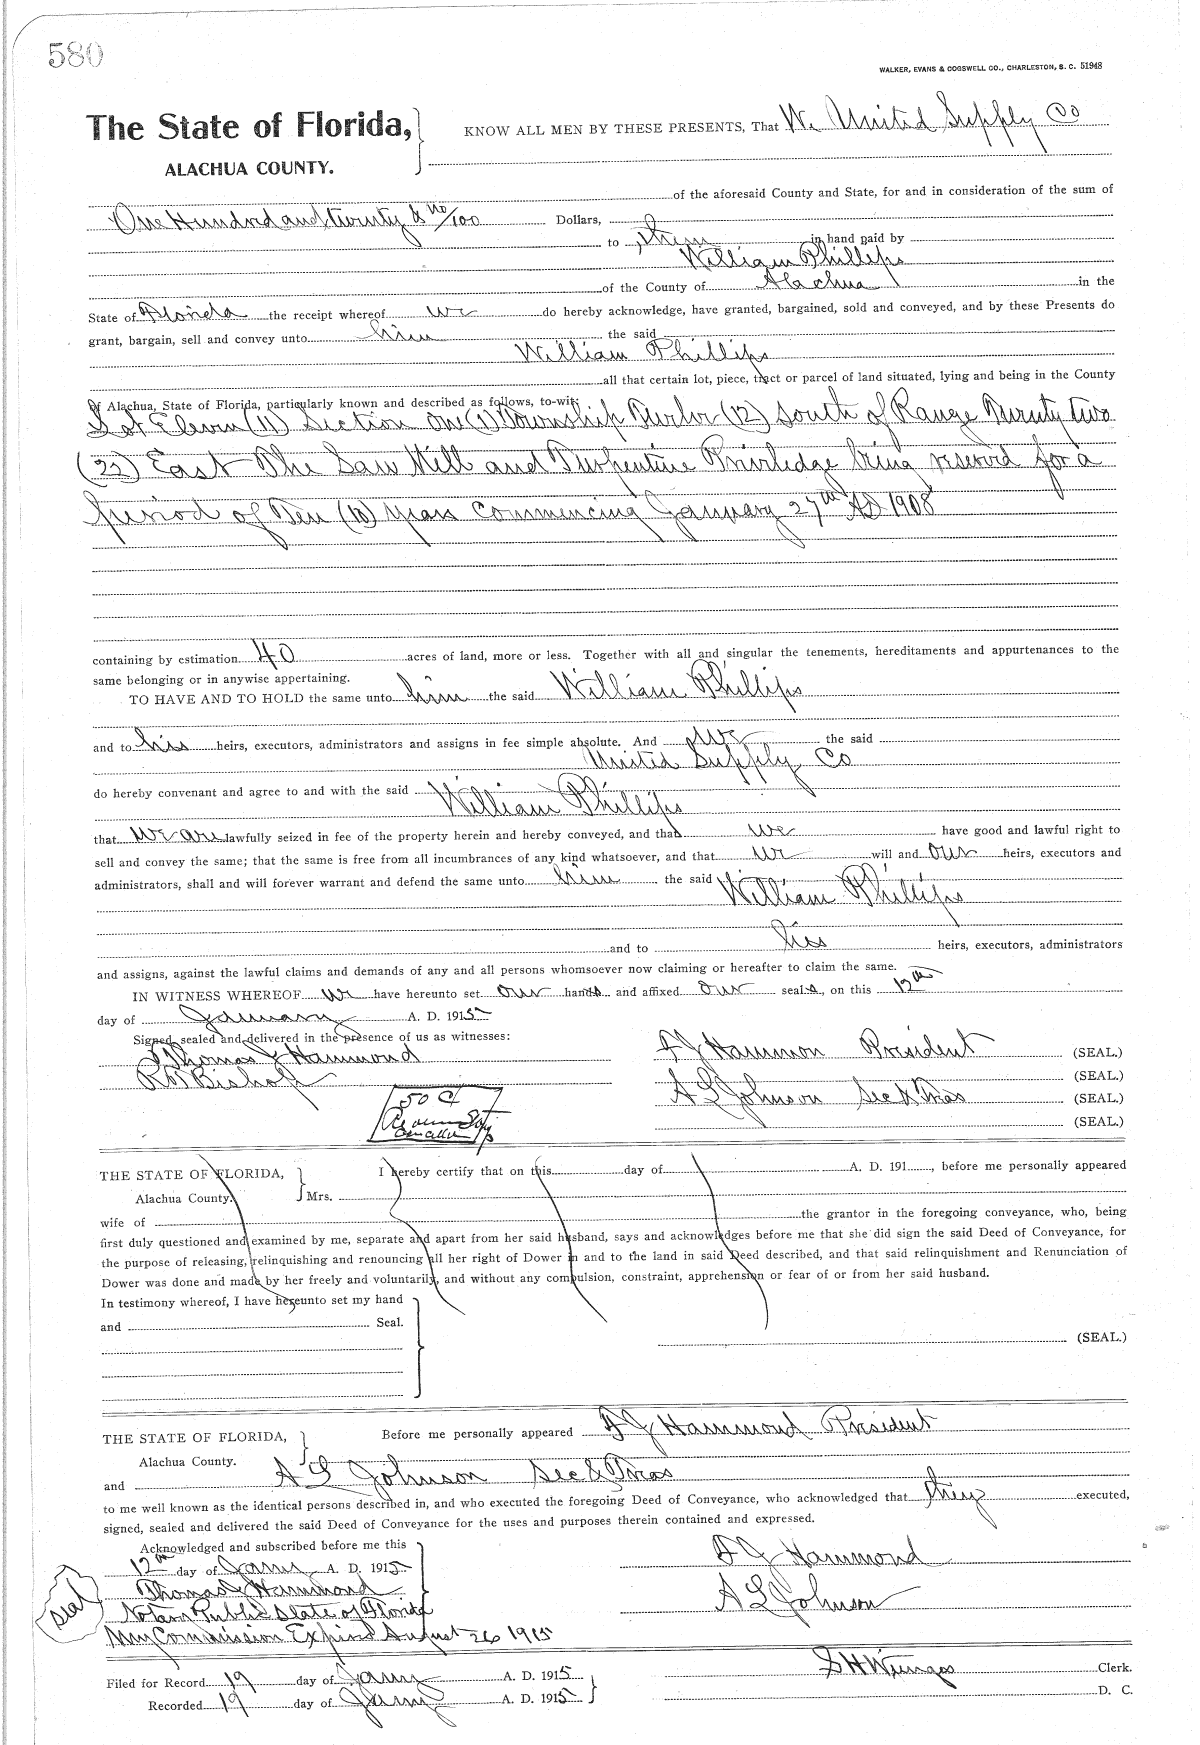 580
WALKER, EVANS & COGSWELL CO., CHARLESTON, S. C. 51948
The State of Florida, KNOW ALL MEN BY THESE PRESENTS, That We United Supply Co
ALACHUA COUNTY.
of the aforesaid County and State, for and in consideration of the sum of
One Hundred and twenty & no/100 Dollars,
to them in hand paid by
William Phillips
of the County of Alachua in the
State of Florida the receipt whereof we do hereby acknowledge, have granted, bargained, sold and conveyed, and by these Presents do
grant, bargain, sell and convey unto him the said
William Phillips
all that certain lot, piece, tract or parcel of land situated, lying and being in the County
of Alachua, State of Florida, particularly known and described as follows, to-wit:
Lot Eleven (11) Section One (1) Township Twelve (12) South of Range Twenty two
(22) East The Saw Mill and Turpentine Priviledge being reserved for a
period of Ten (10) years commencing January 27th AD 1908
containing by estimation 40 acres of land, more or less. Together with all and singular the tenements, hereditaments and appurtenances to the
same belonging or in anywise appertaining.
TO HAVE AND TO HOLD the same unto him the said William Phillips
and to his heirs, executors, administrators and assigns in fee simple absolute. And we the said
United Supply Co
do hereby convenant and agree to and with the said William Phillips
that we are lawfully seized in fee of the property herein and hereby conveyed, and that we have good and lawful right to
sell and convey the same; that the same is free from all incumbrances of any kind whatsoever, and that we will and our heirs, executors and
administrators, shall and will forever warrant and defend the same unto him the said William Phillips
and to his heirs, executors, administrators
and assigns, against the lawful claims and demands of any and all persons whomsoever now claiming or hereafter to claim the same.
IN WITNESS WHEREOF we have hereunto set our hands and affixed our seals, on this 12th
day of January A. D. 1915
Signed, sealed and delivered in the presence of us as witnesses:
Thomas J Hammond F J Hammon President (SEAL.)
R W Bishop (SEAL.)
A L Johnson Sec & Tres (SEAL.)
50 ct (SEAL.)
THE STATE OF FLORIDA, I hereby certify that on this day of A. D. 191 , before me personally appeared
Alachua County. Mrs.
wife of the grantor in the foregoing conveyance, who, being
first duly questioned and examined by me, separate and apart from her said husband, says and acknowledges before me that she did sign the said Deed of Conveyance, for
the purpose of releasing, relinquishing and renouncing all her right of Dower in and to the land in said Deed described, and that said relinquishment and Renunciation of
Dower was done and made by her freely and voluntarily, and without any compulsion, constraint, apprehension or fear of or from her said husband.
In testimony whereof, I have hereunto set my hand
and Seal.
(SEAL.)
THE STATE OF FLORIDA, Before me personally appeared F J Hammond President
Alachua County.
and A L Johnson Sec & Tres
to me well known as the identical persons described in, and who executed the foregoing Deed of Conveyance, who acknowledged that they executed,
signed, sealed and delivered the said Deed of Conveyance for the uses and purposes therein contained and expressed.
Acknowledged and subscribed before me this
12th day of Jany A. D. 1915 F J Hammond
Thomas J Hammond A L Johnson
Seal Notary Public State of Florida
My Commission Expires August 26 1915
Filed for Record 19 day of Jany A. D. 1915 S H Wienges Clerk.
Recorded 19 day of Jany A. D. 1915 D. C.